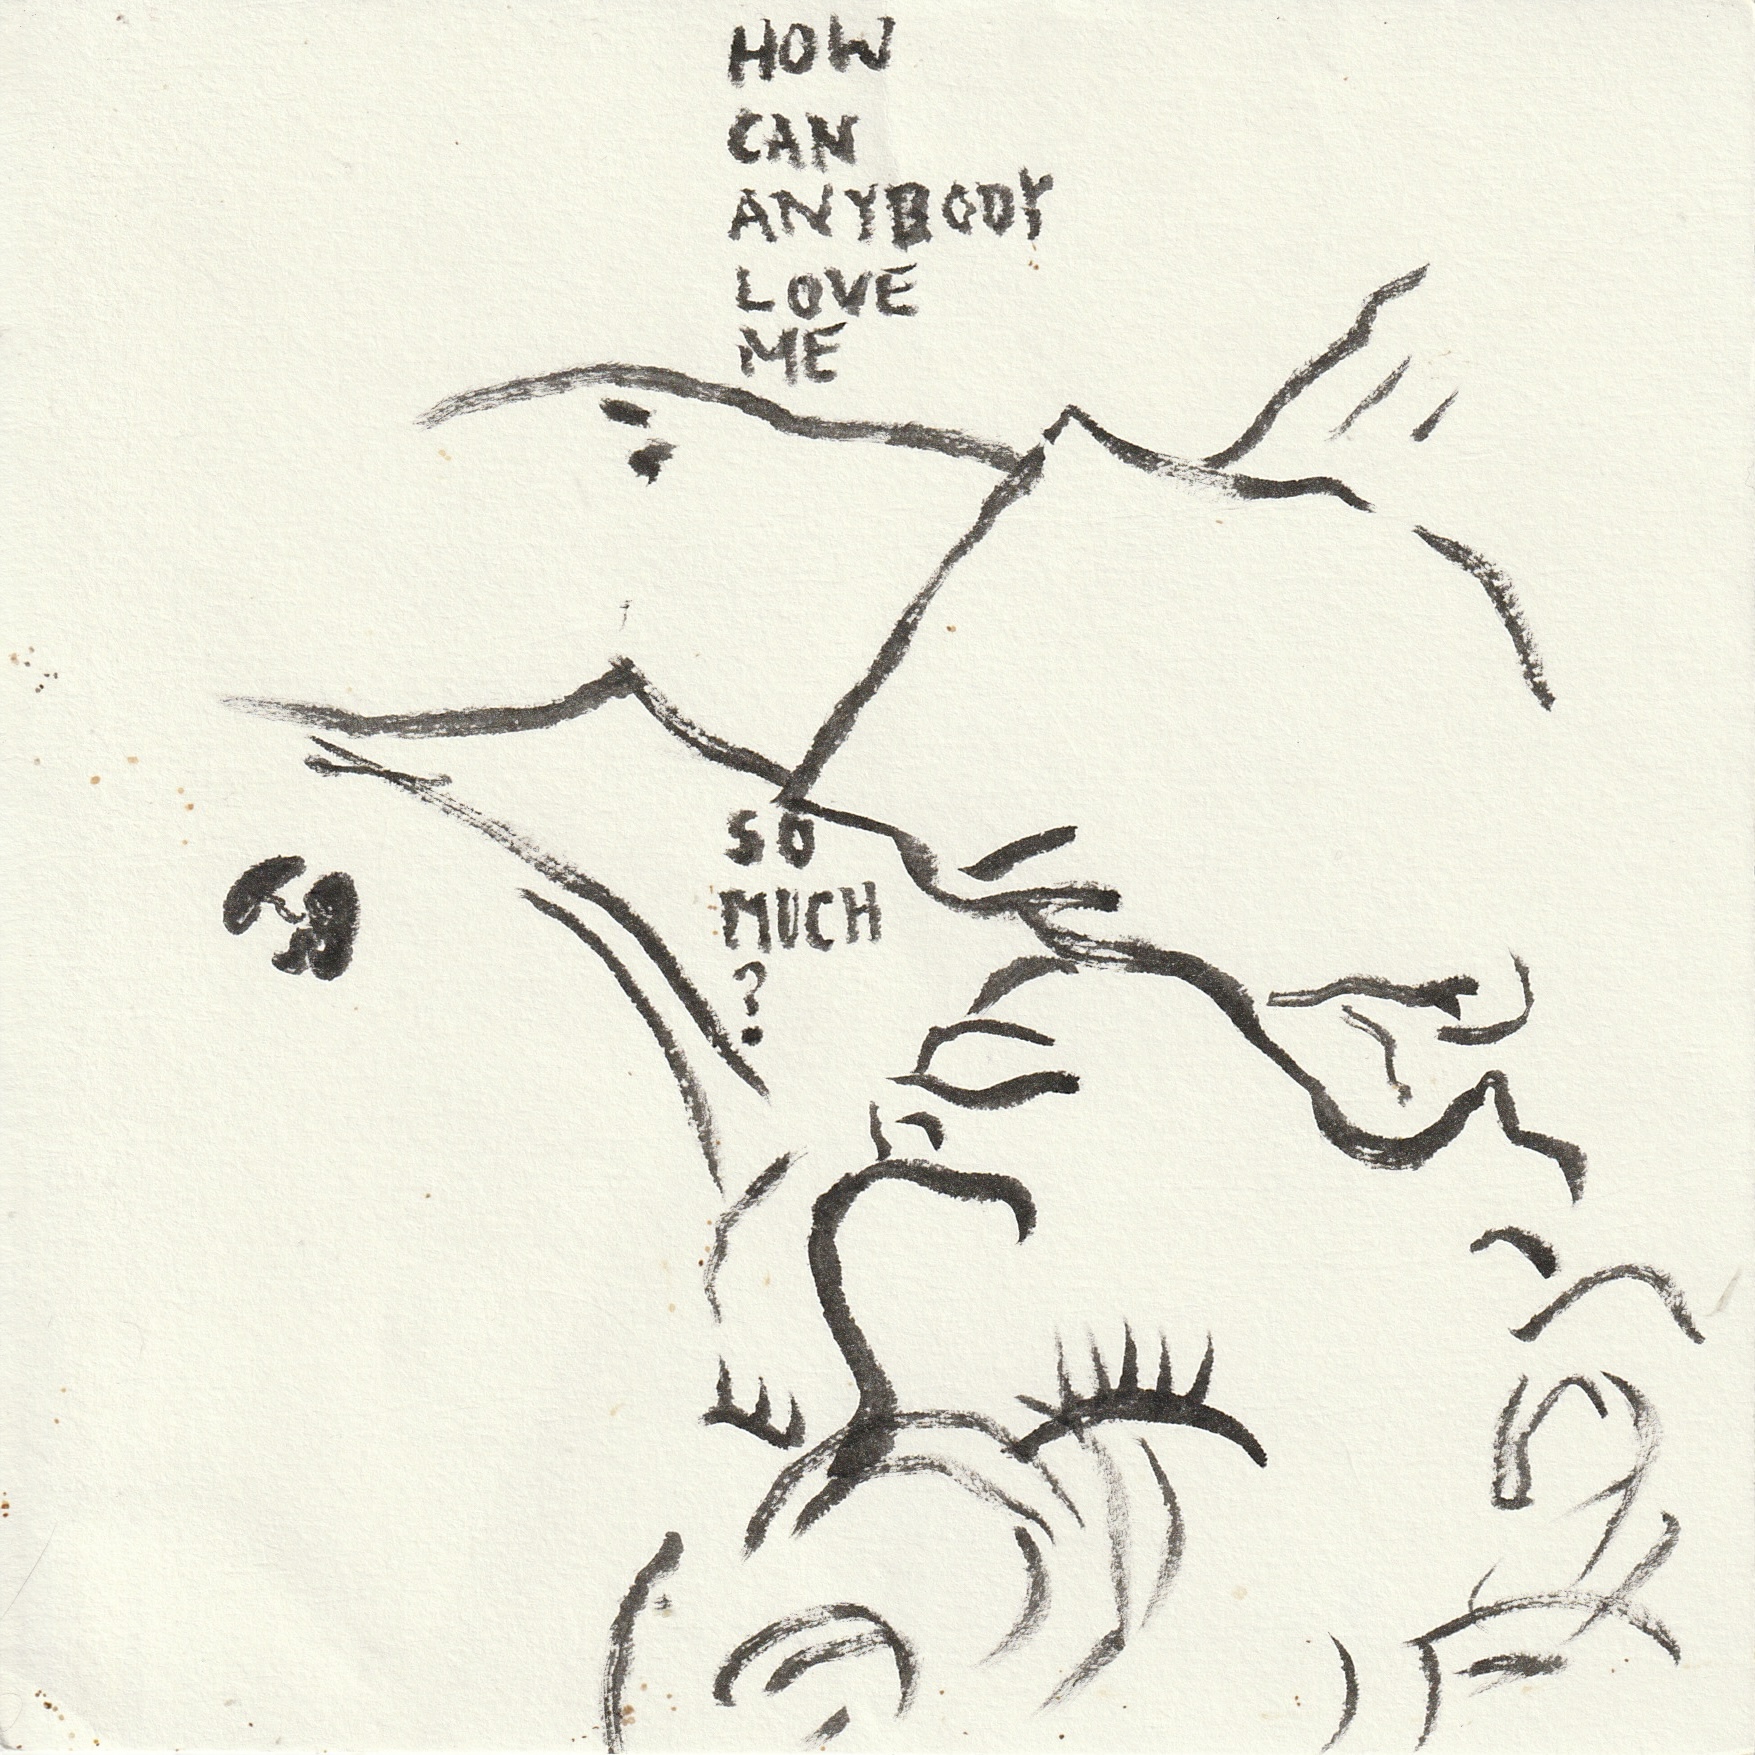 HOW
CAN
ANYBODY
LOVE
ME
SO
MUCH
?